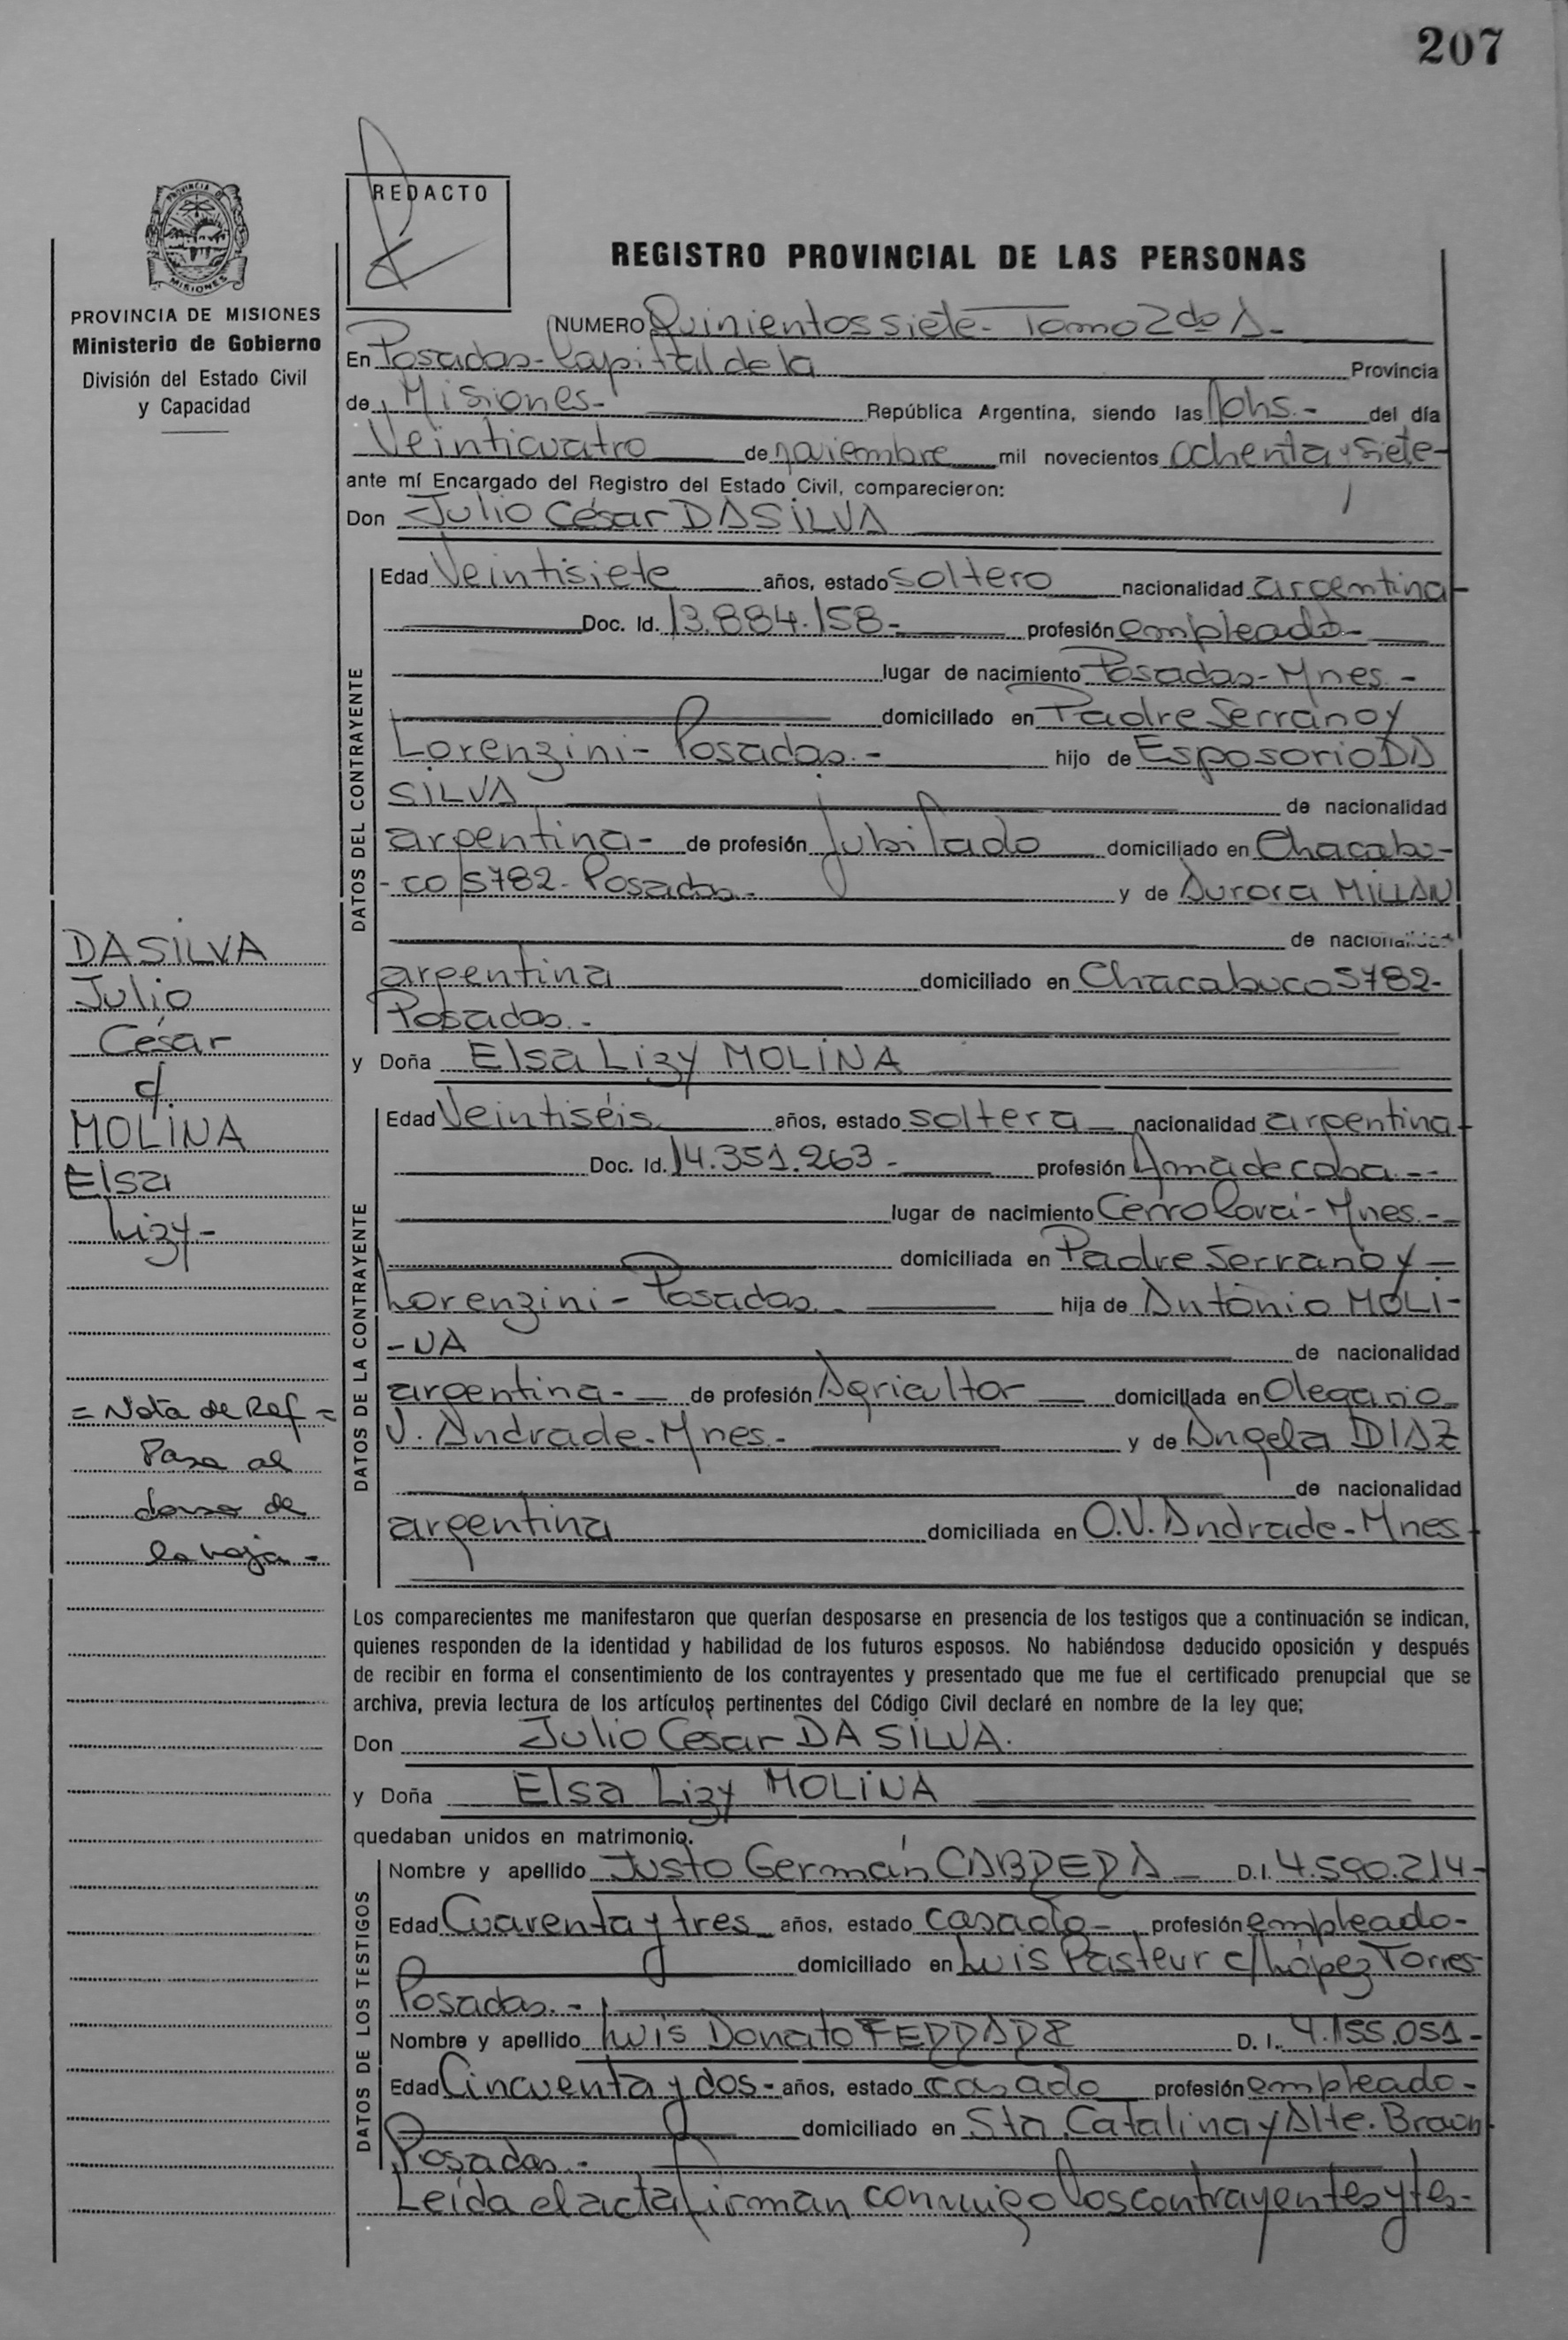 207
REDACTO
REGISTRO PROVINCIAL DE LAS PERSONAS
PROVINCIA DE MISIONES
Ministerio de Gobierno
División del Estado Civil
y Capacidad
NUMERO Quinientos siete- Tomo 2do A-
En Posadas- Capital de la Provincia
de Misiones- República Argentina, siendo las 10hs.- del día
Veinticuatro de noviembre mil novecientos ochenta y siete-
ante mí Encargado del Registro del Estado Civil, comparecieron:
Don Julio César DA SILVA
DATOS DEL CONTRAYENTE
Edad Veintisiete años, estado soltero nacionalidad argentina-
Doc. Id. 13.884.158- profesión empleado-
lugar de nacimiento Posadas- Mnes.-
domiciliado en Padre Serrano y
Lorenzini- Posadas.- hijo de Esposorio DA
SILVA de nacionalidad
argentina- de profesión Jubilado domiciliado en Chacabu-
-co 5782- Posadas- y de Aurora MILLAN
de nacionalidad
argentina domiciliado en Chacabuco 5782-
Posadas.-
y Doña Elsa Lizy MOLINA
DATOS DE LA CONTRAYENTE
Edad Veintiséis años, estado soltera nacionalidad argentina-
Doc. Id. 14.351.263- profesión Ama de casa.-
lugar de nacimiento Cerro Corá- Mnes.-
domiciliada en Padre Serrano y
Lorenzini- Posadas- hija de Antonio MOLI-
-NA de nacionalidad
argentina- de profesión Agricultor domiciliada en Olegario
V. Andrade- Mnes.- y de Angela DIAZ
de nacionalidad
argentina domiciliada en O.V. Andrade- Mnes-
Los comparecientes me manifestaron que querían desposarse en presencia de los testigos que a continuación se indican,
quienes responden de la identidad y habilidad de los futuros esposos. No habiéndose deducido oposición y después
de recibir en forma el consentimiento de los contrayentes y presentado que me fue el certificado prenupcial que se
archiva, previa lectura de los artículos pertinentes del Código Civil declaré en nombre de la ley que;
Don Julio César DA SILVA.
y Doña Elsa Lizy MOLINA
quedaban unidos en matrimonio.
DATOS DE LOS TESTIGOS
Nombre y apellido Justo Germán CABRERA D.I. 4.590.214-
Edad Cuarenta y tres años, estado casado- profesión empleado-
domiciliado en Luis Pasteur c/ López Torres-
Posadas.-
Nombre y apellido Luis Donato D. I. 4.155.051-
Edad Cincuenta y dos- años, estado casado profesión empleado-
domiciliado en Sta. Catalina y Alte. Brown
Posadas.-
Leída el acta firman conmigo los contrayentes y tes-
DA SILVA
Julio
César
c/
MOLINA
Elsa
Lizy-
= Nota de Ref =
Pasa al
dorso de
la hoja-